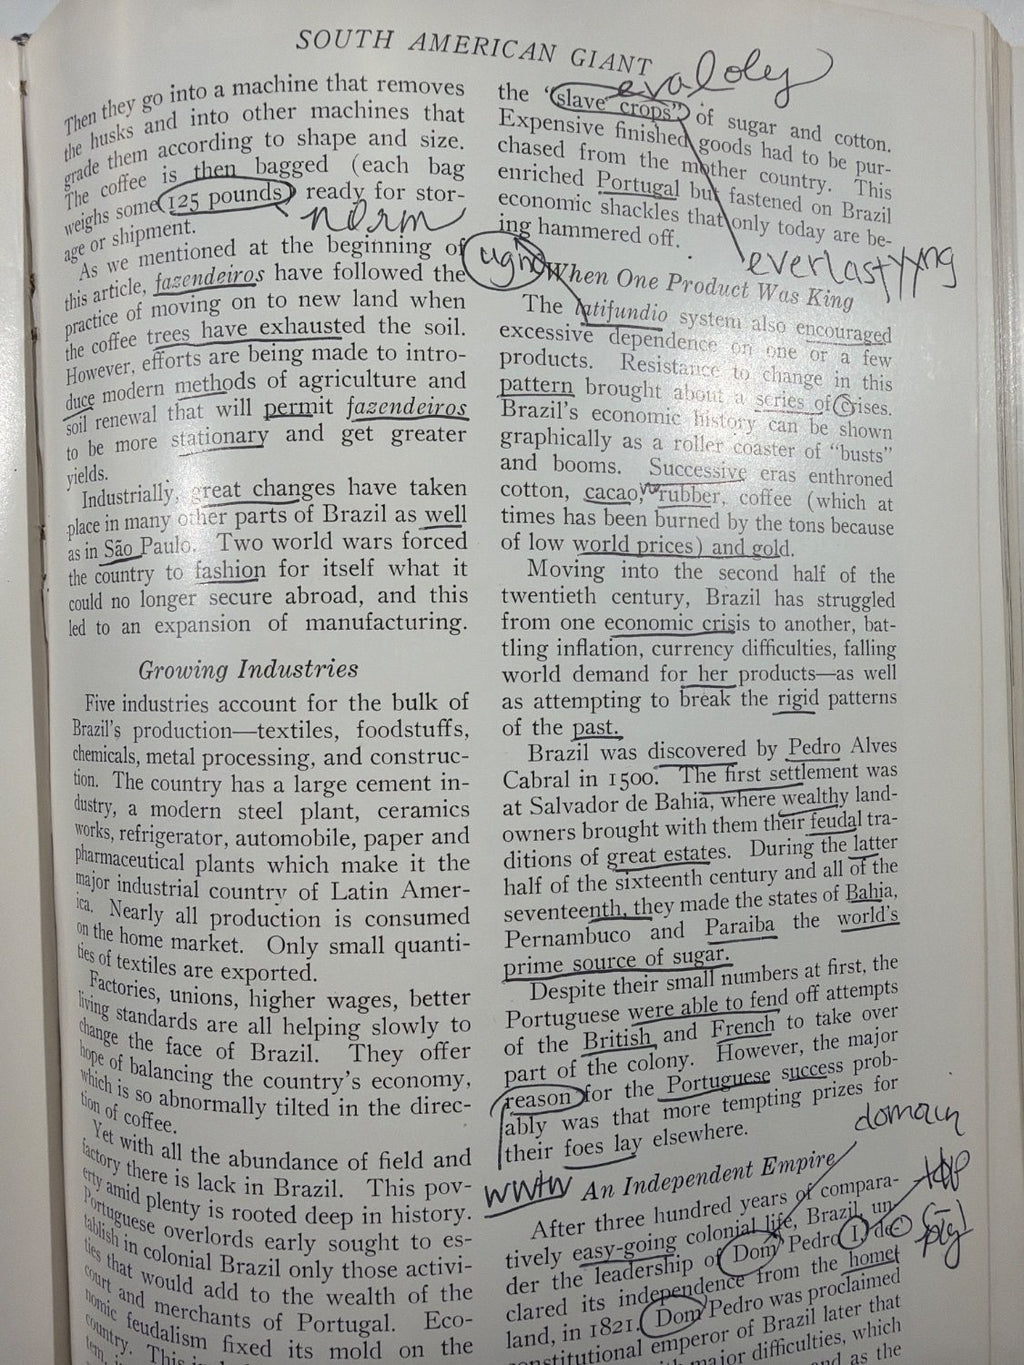 SOUTH AMERICAN GIANT
Then they go into a machine that removes
the husks and into other machines that
grade them according to shape and size.
The coffee is then bagged (each bag
weighs some 125 pounds) ready for stor-
norm
age or shipment.
As we mentioned at the beginning of
this article, fazendeiros have followed the
practice of moving on to new land when
the coffee trees have exhausted the soil.
However, efforts are being made to intro-
duce modern methods of agriculture and
soil renewal that will permit fazendeiros
to be more stationary and get greater
yields.
Industrially, great changes have taken
place in many other parts of Brazil as well
as in São Paulo. Two world wars forced
the country to fashion for itself what it
could no longer secure abroad, and this
led to an expansion of manufacturing.
Growing Industries
Five industries account for the bulk of
Brazil's production—textiles, foodstuffs,
chemicals, metal processing, and construc-
tion. The country has a large cement in-
dustry, a modern steel plant, ceramics
works, refrigerator, automobile, paper and
pharmaceutical plants which make it the
major industrial country of Latin Amer-
ica. Nearly all production is consumed
on the home market. Only small quanti-
ties of textiles are exported.
Factories, unions, higher wages, better
living standards are all helping slowly to
change the face of Brazil. They offer
hope of balancing the country's economy,
which is so abnormally tilted in the direc-
tion of coffee.
Yet with all the abundance of field and
factory there is lack in Brazil. This pov-
erty amid plenty is rooted deep in history.
Portuguese overlords early sought to es-
tablish in colonial Brazil only those activi-
ties that would add to the wealth of the
court and merchants of Portugal. Eco-
nomic feudalism fixed its mold on the
country. This
the "slave crops" of sugar and cotton.
Expensive finished goods had to be pur-
chased from the mother country. This
enriched Portugal but fastened on Brazil
economic shackles that only today are be-
ing hammered off.
everlastyyng
ugh
When One Product Was King
The latifundio system also encouraged
excessive dependence on one or a few
products. Resistance to change in this
pattern brought about a series of crises.
Brazil's economic history can be shown
graphically as a roller coaster of "busts"
and booms. Successive eras enthroned
cotton, cacao, rubber, coffee (which at
times has been burned by the tons because
of low world prices) and gold.
Moving into the second half of the
twentieth century, Brazil has struggled
from one economic crisis to another, bat-
tling inflation, currency difficulties, falling
world demand for her products—as well
as attempting to break the rigid patterns
of the past.
Brazil was discovered by Pedro Alves
Cabral in 1500. The first settlement was
at Salvador de Bahia, where wealthy land-
owners brought with them their feudal tra-
ditions of great estates. During the latter
half of the sixteenth century and all of the
seventeenth, they made the states of Bahia,
Pernambuco and Paraiba the world's
prime source of sugar.
Despite their small numbers at first, the
Portuguese were able to fend off attempts
of the British and French to take over
part of the colony. However, the major
reason for the Portuguese success prob-
ably was that more tempting prizes for
their foes lay elsewhere.
domain
wwtw
An Independent Empire
After three hundred years of compara-
tively easy-going colonial life, Brazil, un-
der the leadership of Dom Pedro I, de-
clared its independence from the home-
land, in 1821. Dom Pedro was proclaimed
constitutional emperor of Brazil later that
major difficulties, which
and as the